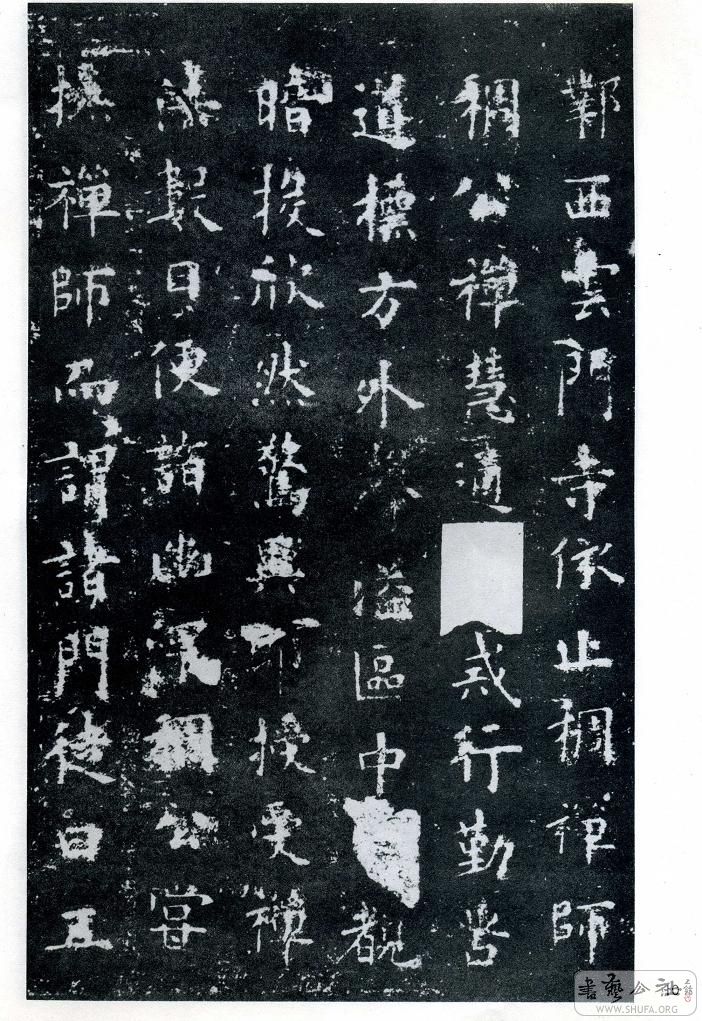 鄴西雲門寺依止稠禪師
稠公禪慧通戒行勤苦
道標方外聲溢區中覩
暗投欣然驚異即授受禪
灋數日便詣幽深稠公嘗
撫禪師而謂諸門徒曰五
書藝公社
WWW.SHUFA.ORG